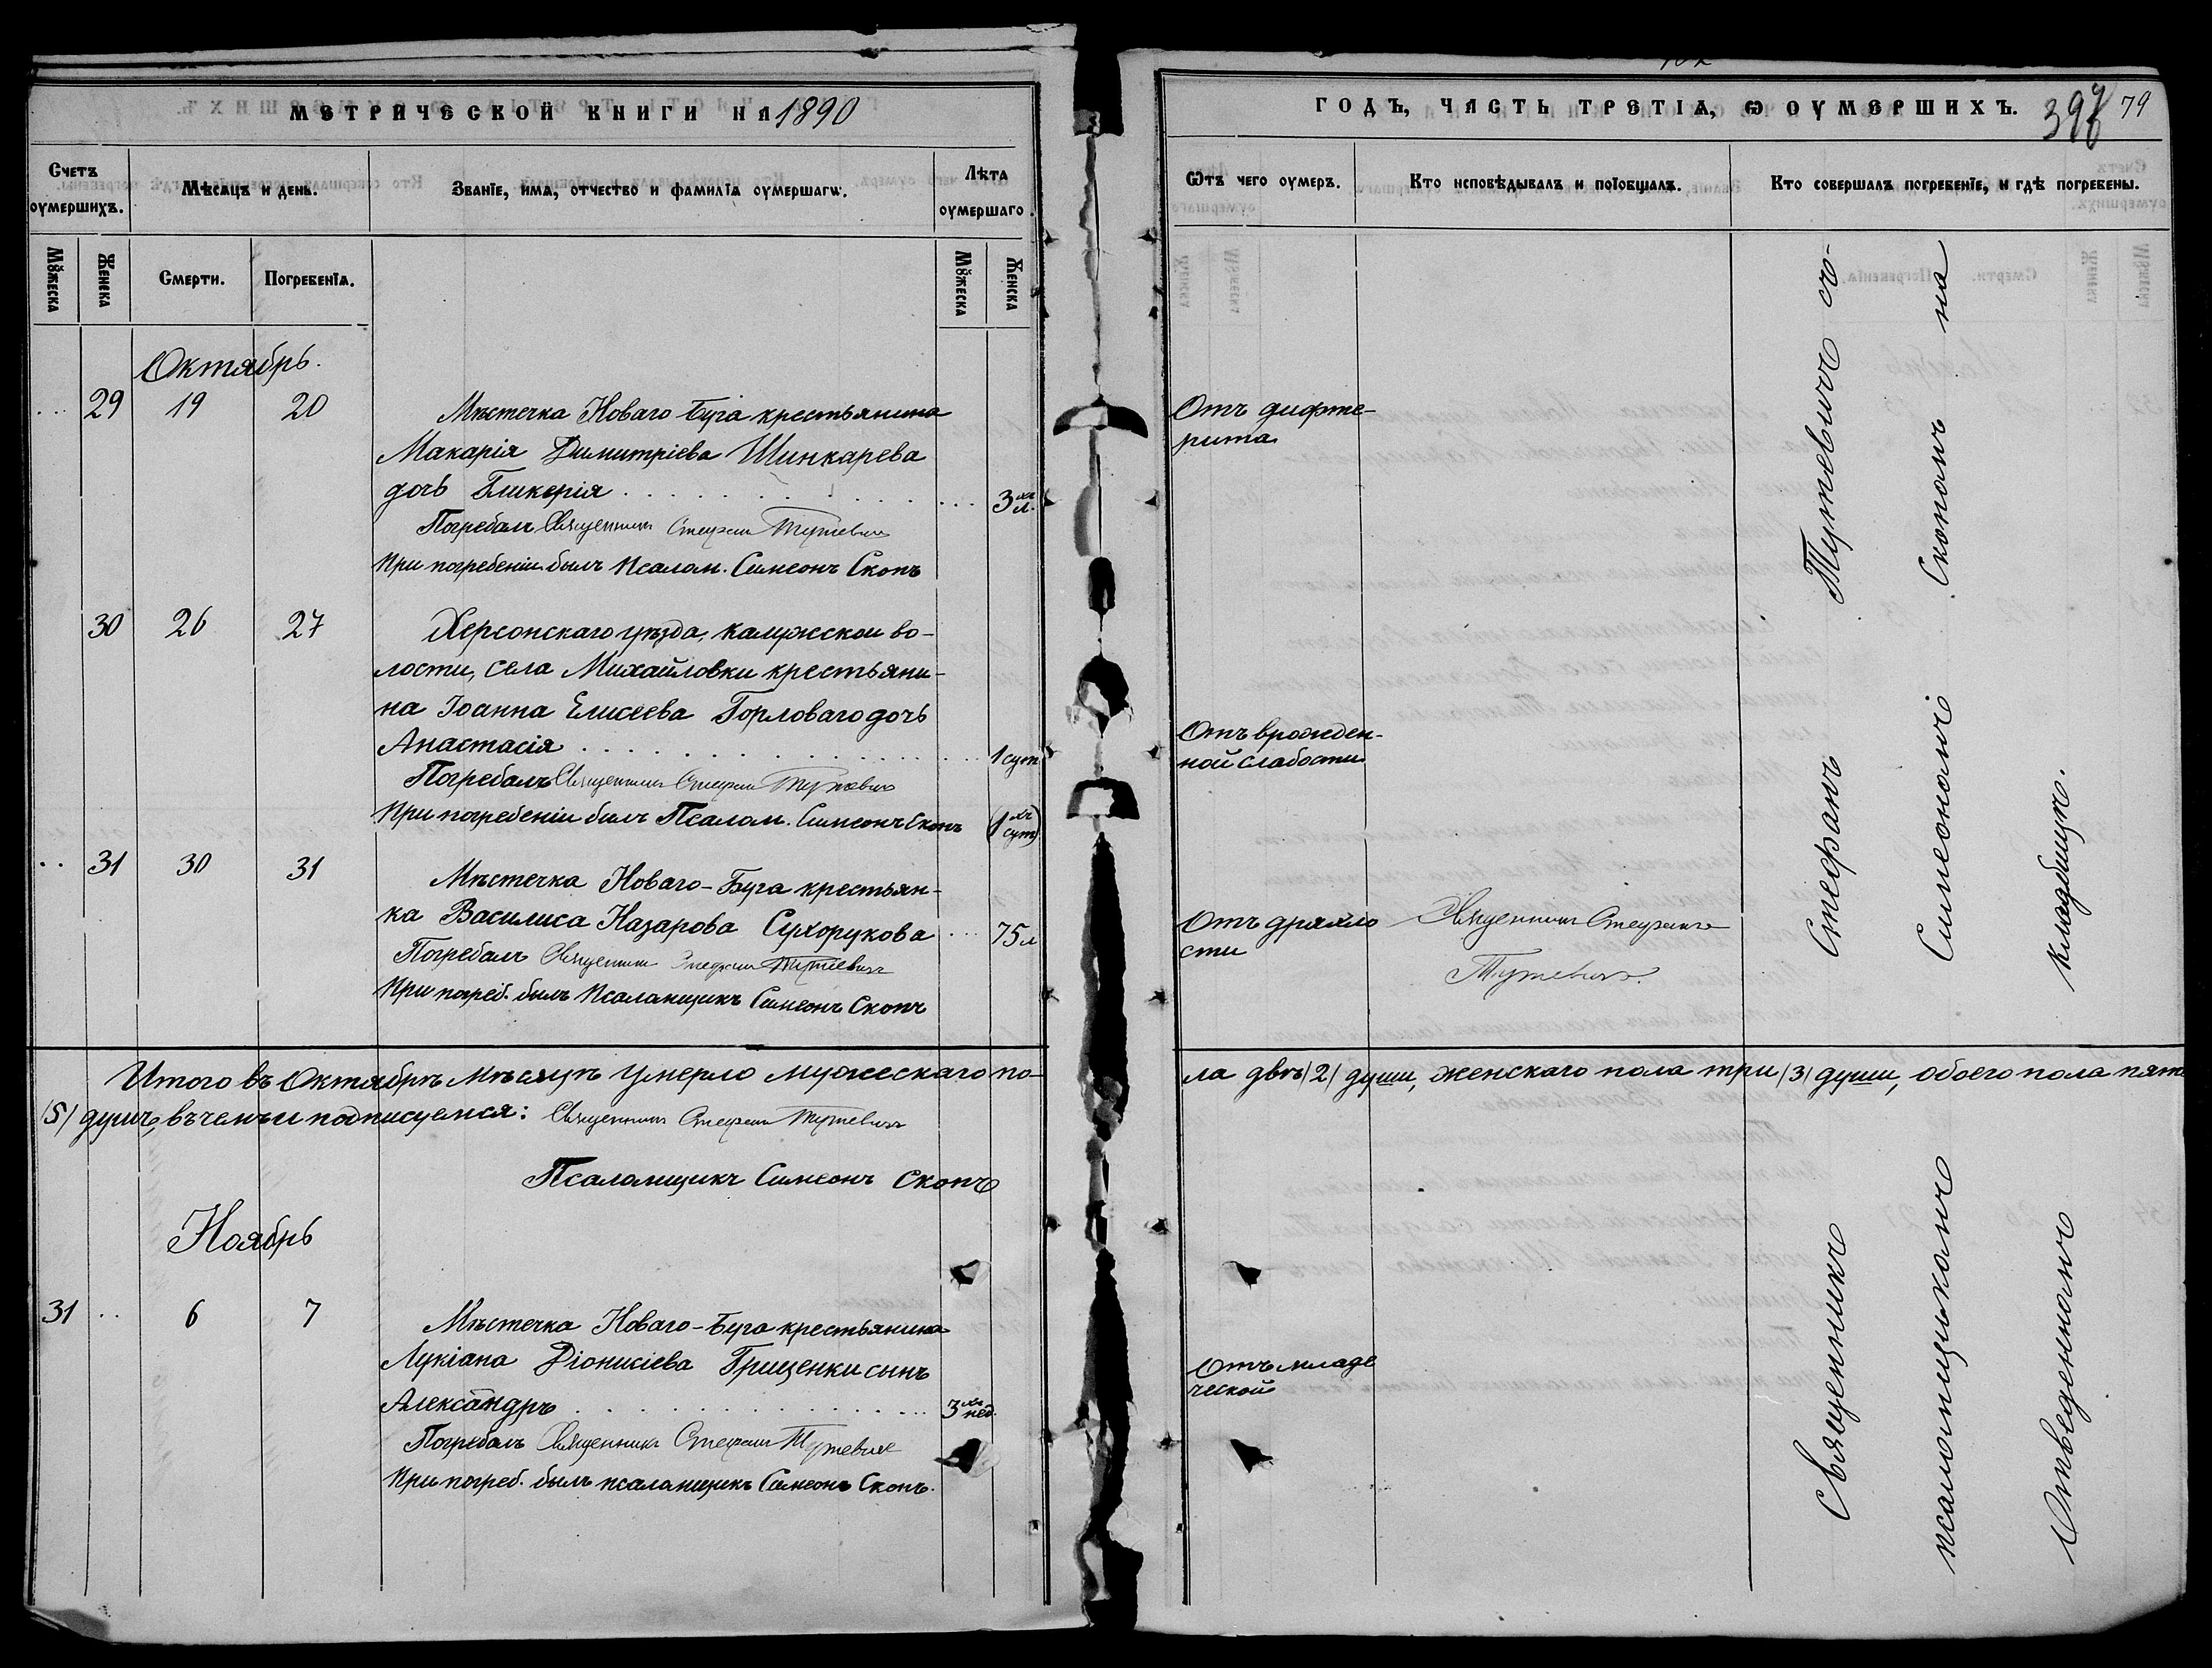 МЕТРИЧЕСКОЙ КНИГИ НА 1890
Счетъ оумершихъ.
Мѣсяцъ и день.
Званіе, имя, отчество и фамилія оумершагѡ.
Лѣта оумершаго.
Мꙋжеска
Женска
Смерти.
Погребенія.
Мꙋжеска
Женска
Октябрь.
... 29 19 20 Мѣстечка Новаго Буга крестьянина
Макарія Димитріева Шинкарева
дочь Гликерія . . . . . . . . . ... 3хъ л.
Погребалъ Священникъ Стефанъ Тутевичъ
При погребеніи былъ Псалом. Симеонъ Скопъ
30 26 27 Херсонскаго уѣзда, Калужской во-
лости, села Михайловки крестьяни-
на Іоанна Елисеева Горловаго дочь
Анастасія . . . . . . . . . ... 1 сут
Погребалъ Священникъ Стефанъ Тутевичъ
При погребеніи былъ Псалом. Симеонъ Скопъ (1хъ сут)
.. 31 30 31 Мѣстечка Новаго-Буга крестьян-
ка Василиса Назарова Сухорукова ... 75 л
Погребалъ Священникъ Стефанъ Тутевичъ
При погреб. былъ Псаломщикъ Симеонъ Скопъ
Итого въ Октябрѣ мѣсяцѣ умерло мужескаго по-
/5/ душъ, въ чемъ и подписуемся: Священникъ Стефанъ Тутевичъ
Псаломщикъ Симеонъ Скопъ
Ноябрь
31 .. 6 7 Мѣстечка Новаго-Буга крестьянина
Лукіана Діонисіева Грищенки сынъ
Александръ . . . . . . . . . ... 3хъ нед.
Погребалъ Священникъ Стефанъ Тутевичъ
При погреб. былъ псаломщикъ Симеонъ Скопъ.
ГОДЪ, ЧАСТЬ ТРЕТІЯ, Ѡ ОУМЕРШИХЪ. 397 79
Ѿтъ чего оумеръ.
Кто исповѣдывалъ и пріобщалъ.
Кто совершалъ погребеніе, и гдѣ погребены.
Отъ дифте-
рита
Отъ врожден-
ной слабости
Отъ дряхло
сти
Священникъ Стефанъ
Тутевичъ.
ла двѣ /2/ души, женскаго пола три /3/ души, обоего пола пять
Отъ младе
ческой
Священникъ Стефанъ Тутевичъ съ
псаломщикомъ Симеономъ Скопомъ на
Отведенномъ кладбищѣ.